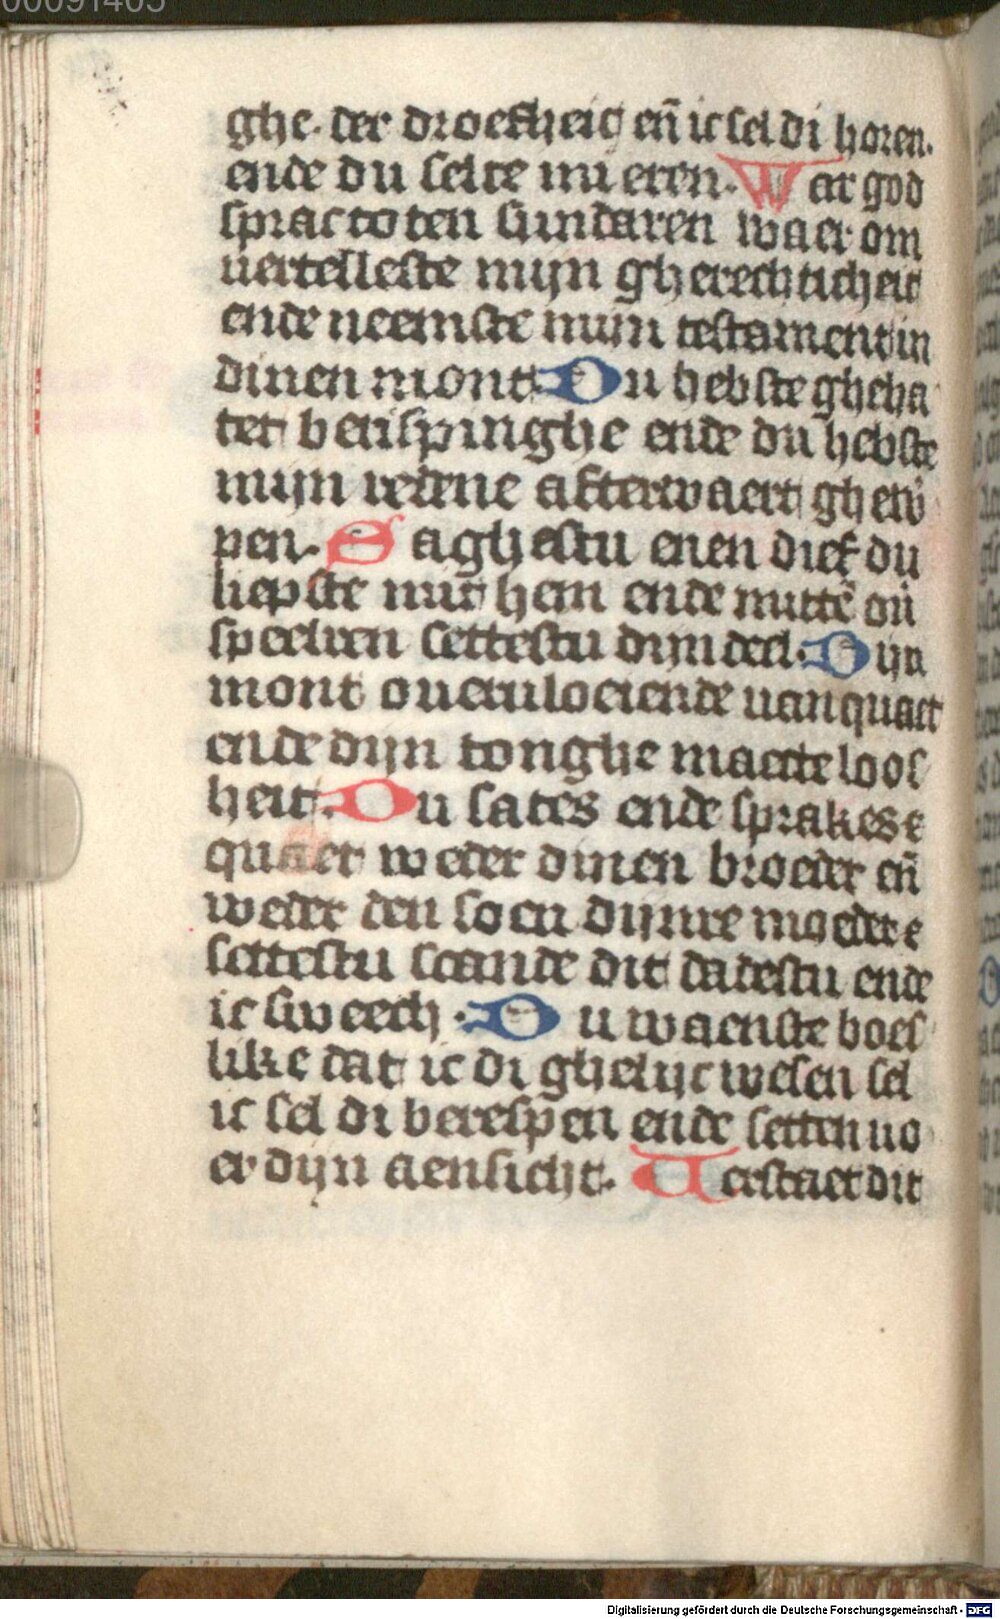 00091405
ghe. der droefheit en̄ ic sel di horen.
ende du selte mi eren. War god
sprac to ten sundaren waer om
uertelleste mijn gherechticheit
ende neemste mijn testament in
dinen mont Du hebste gheha
tet berispinghe ende du hebste
mijn redene afterwaert ghew̄
pen. Saghestu enen dief du
liepste mit hem ende mittē ou̅
speelren settestu dijn deel. Dijn
mont oueruloeiende uan quaet
ende dijn tonghe maecte loos
heit. Du sates ende sprakeste
quaet weder dinen broeder en̄
weder den soen dijnre moeder e
settestu scande dit dadestu ende
ic sweech. Du waenste boes
like dat ic di ghelijc wesen sel
ic sel di berespen ende setten uo
er dijn aensicht. Uerstaet dit
Digitalisierung gefördert durch die Deutsche Forschungsgemeinschaft - DFG